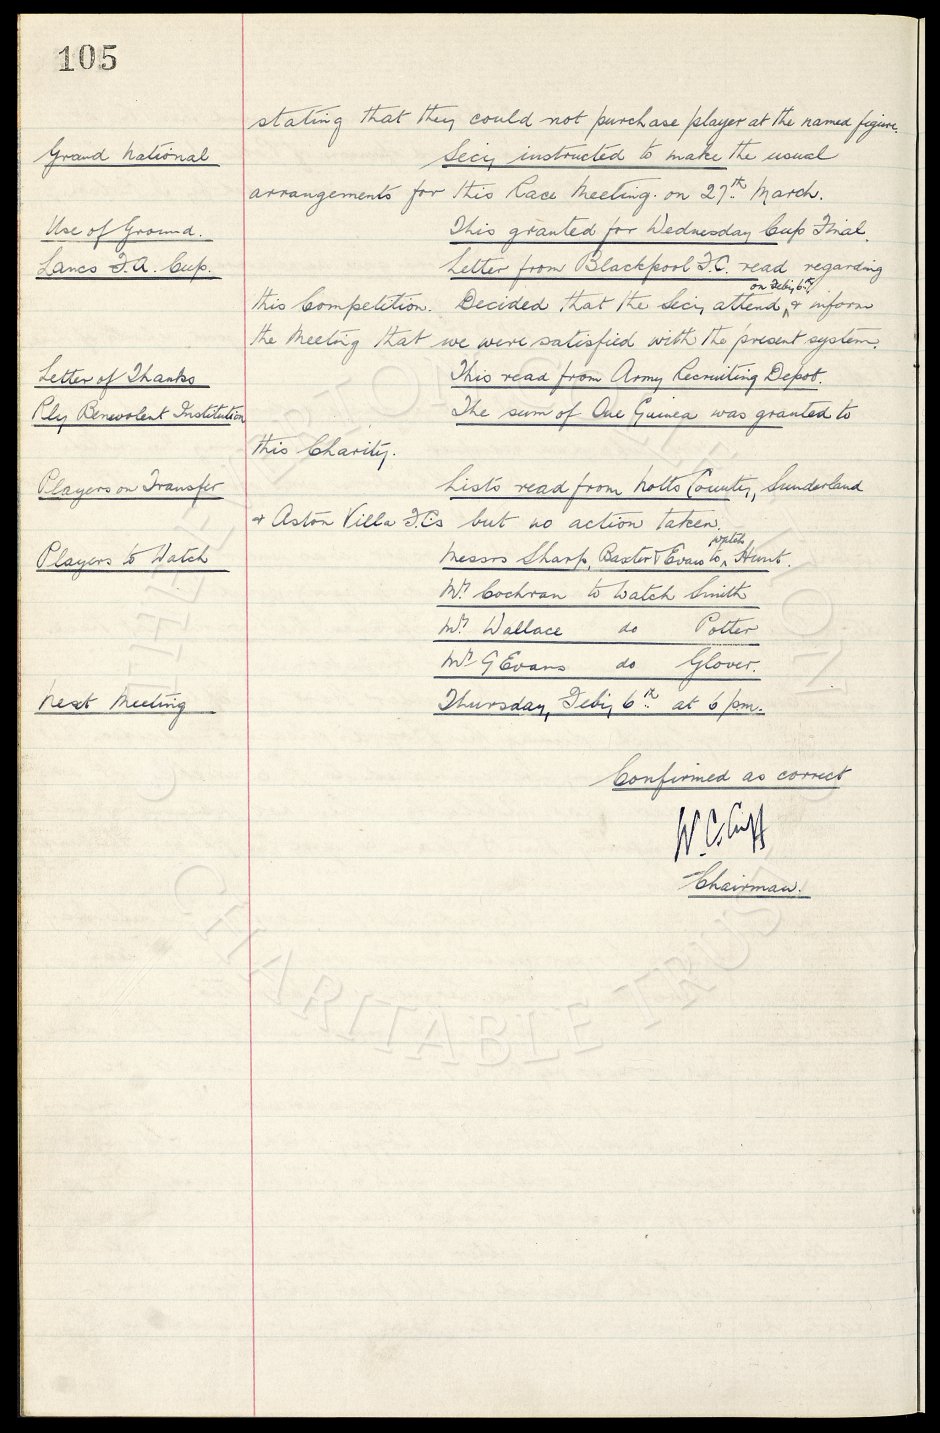 105
stating that they could not purchase player at the named figure.
Grand National Secy instructed to make the usual
arrangements for this Race Meeting on 27th March.
Use of Ground. This granted for Wednesday Cup Final.
Lancs F.A. Cup. Letter from Blackpool F.C. read regarding
on Feby 6th
this Competition. Decided that the Secy attend, & inform
the Meeting that we were satisfied with the present system.
Letter of Thanks This read from Army Recruiting Depot.
Ply Benevolent Institution The sum of One Guinea was granted to
this Charity.
Players on Transfer Lists read from Notts County, Sunderland
& Aston Villa F.Cs but no action taken.
watch
Players to Watch Messrs Sharp, Baxter & Evans to Hunt.
Mr. Cochran to Watch Smith
Mr. Wallace do Potter
Mr. G Evans do Glover.
Next Meeting Thursday, Feby 6th at 6 pm.
Confirmed as correct
W. C. Cuff
Chairman.
THE EVERTON COLLECTION
CHARITABLE TRUST